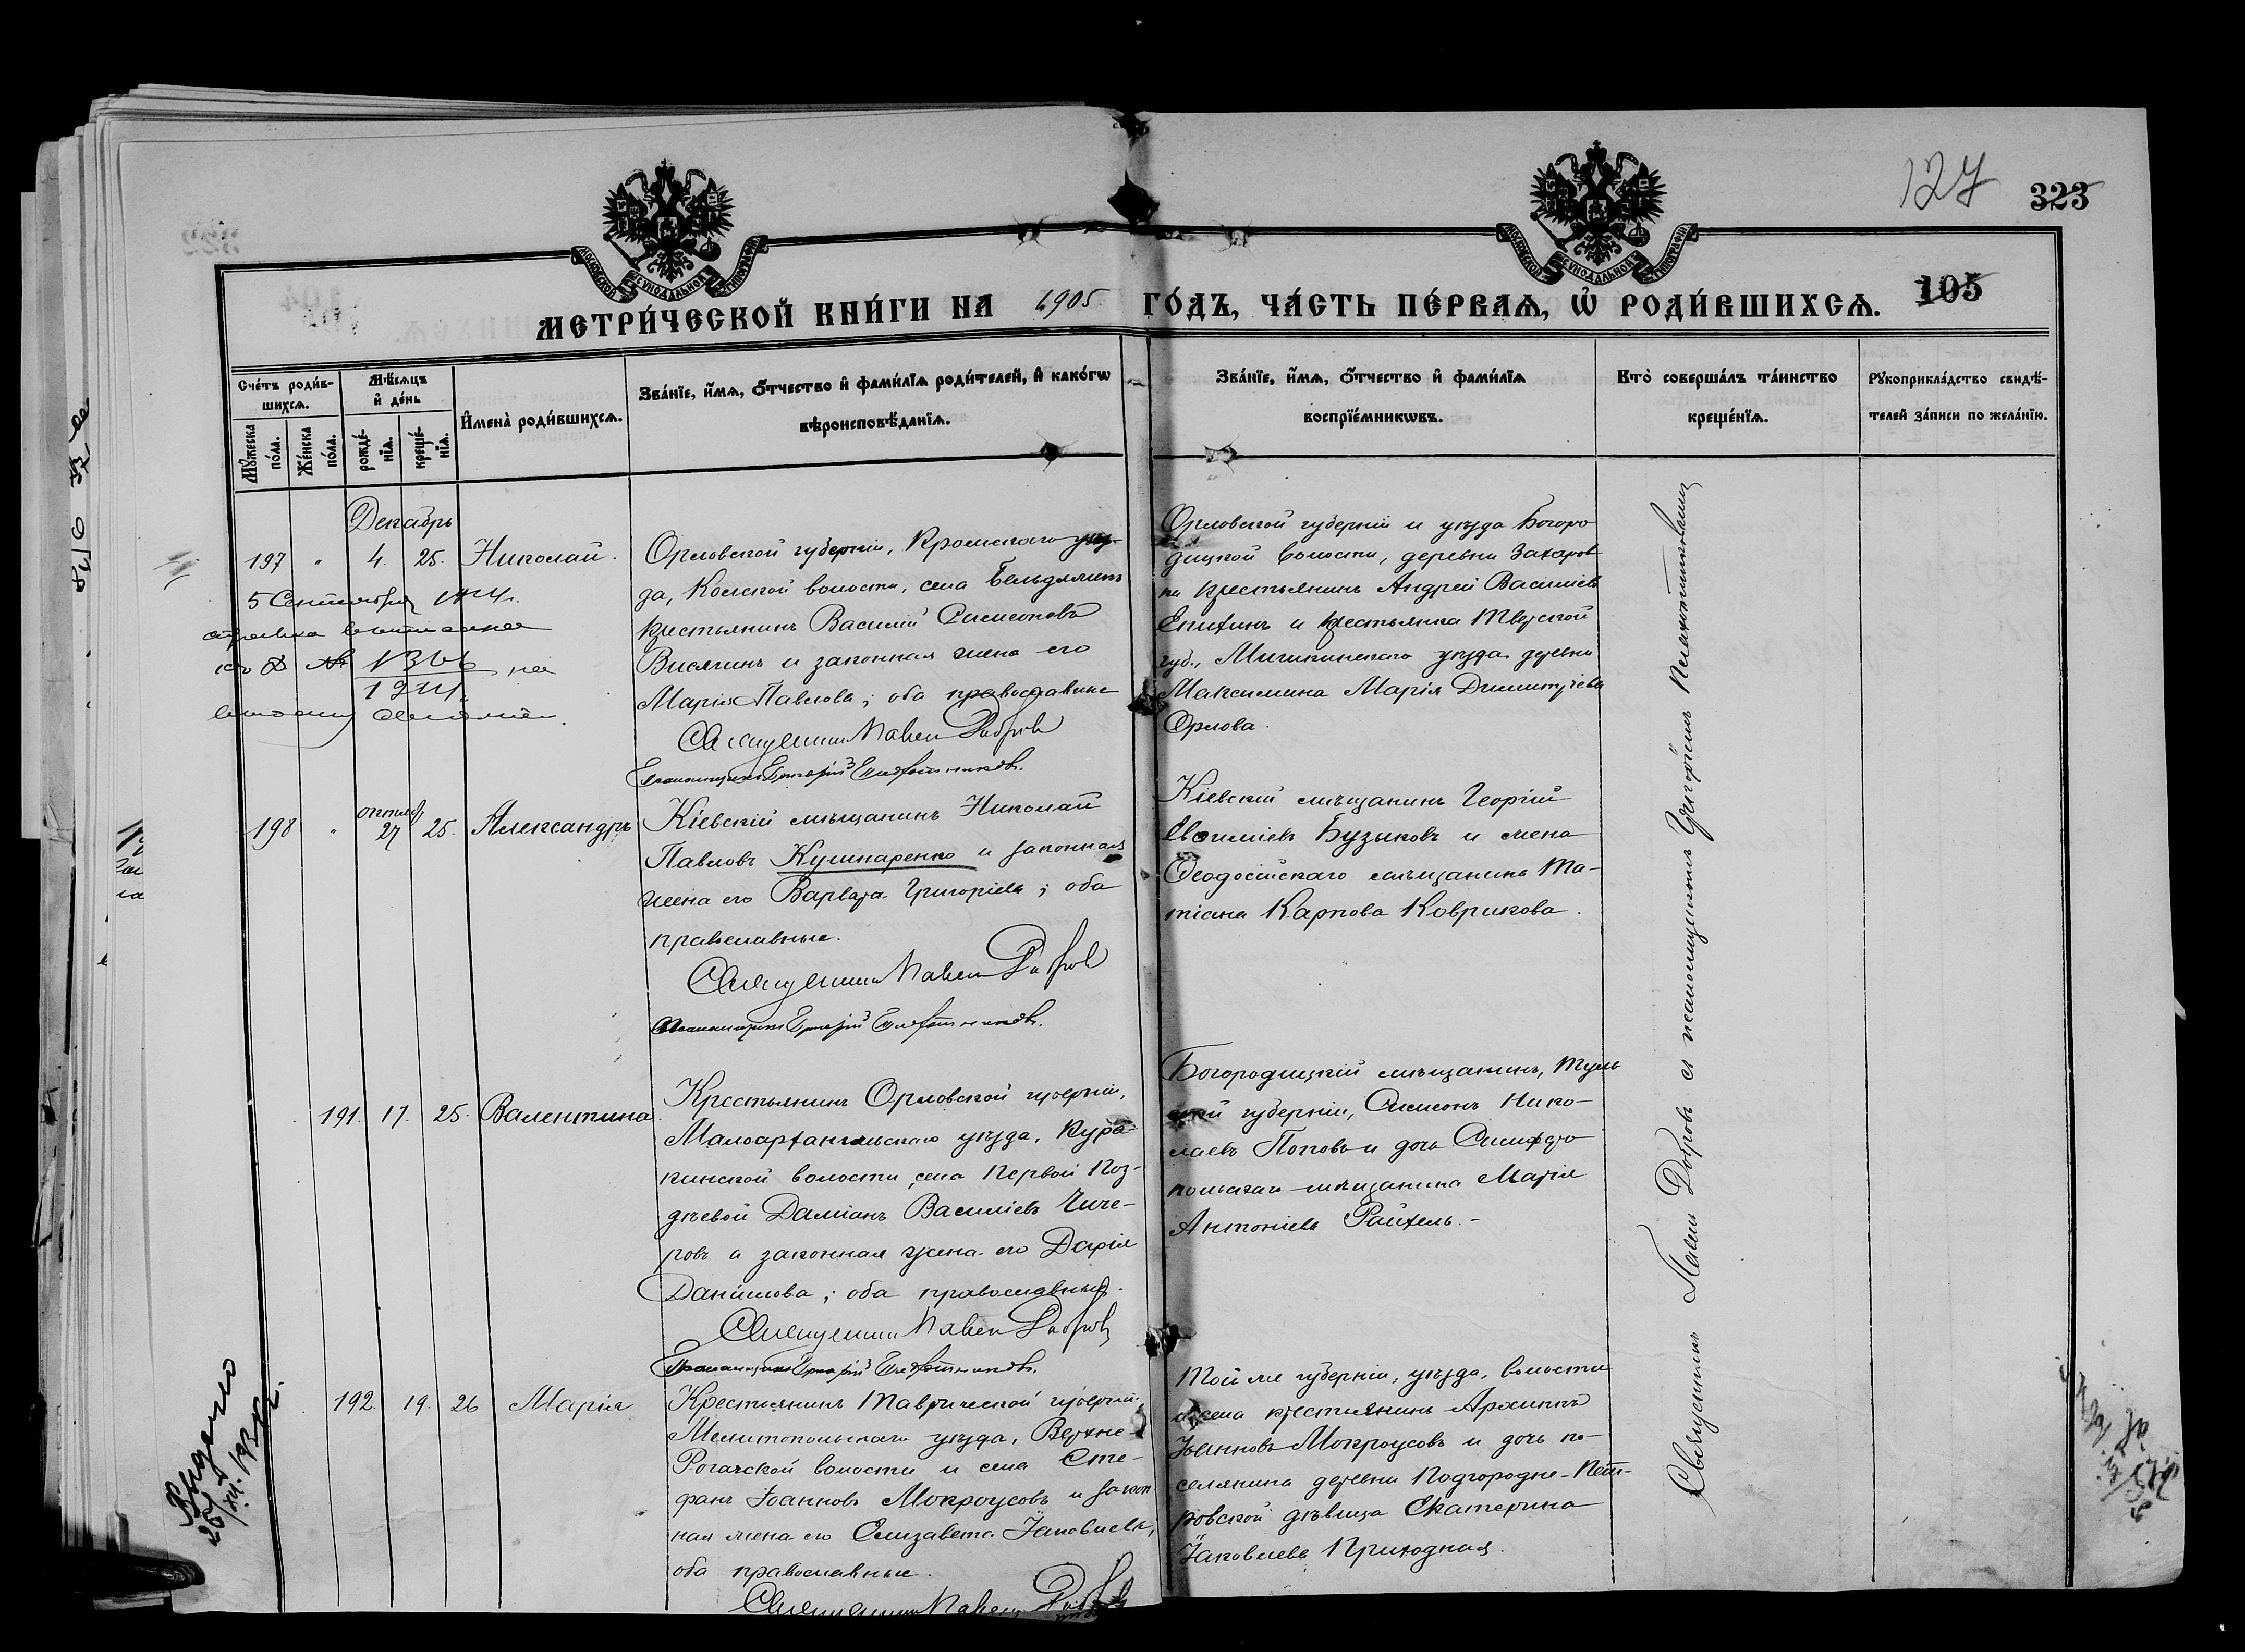 127
323
105
МОСКОВСКОЙ СУНОДАЛЬНОЙ ТИПОГРАФІИ
МОСКОВСКОЙ СУНОДАЛЬНОЙ ТИПОГРАФІИ
МЕТРИ́ЧЕСКОЙ КНИ́ГИ НА 1905. ГО́ДЪ, ЧА́СТЬ ПЕ́РВАЯ, Ѡ҆ РОДИ́ВШИХСѦ.
Сче́тъ роди́в-
шихсѧ.
Мꙋ́жеска по́ла.
Же́нска по́ла.
Мѣ́сѧцъ и҆ де́нь
рожде́-нїѧ.
креще́-нїѧ.
И҆мена̀ роди́вшихсѧ.
Зва́нїе, и҆́мѧ, ѻ҆́тчество и҆ фами́лїѧ роди́телей, и҆ како́гѡ
вѣроисповѣ́данїѧ.
Зва́нїе, и҆́мѧ, ѻ҆́тчество и҆ фами́лїѧ
воспрїе́мникѡвъ.
Кто̀ соверша́лъ та́инство
креще́нїѧ.
Рꙋкоприкла́дство свидѣ́-
телей за́писи по жела́нїю.
Декабрь
197 " 4. 25. Николай.
5 Сентября
на
Орловской губерніи, Кромскаго уѣз-
да, Коской волости, села Бельдяжекъ
крестьянинъ Василій Симеоновъ
Висягинъ и законная жена его
Марія Павлова; оба православные
Священникъ Павелъ Добровъ
Псаломщикъ Григорій Плахотниковъ.
Орловской губерніи и уѣзда Богоро-
дицкой волости, деревни Захаров-
ки крестьянинъ Андрей Василіевъ
Епихинъ и крестьянка Тверской
губ., Мышкинскаго уѣзда деревни
Максимина Марія Димитріева
Орлова.
198 " октября 27 25. Александръ
Кіевскій мѣщанинъ Николай
Павловъ Кушнаренко и законная
жена его Варвара Григоріева; оба
православные.
Священникъ Павелъ Добровъ
Псаломщикъ Григорій Плахотниковъ.
Кіевскій мѣщанинъ Георгій
Василіевъ Бузыковъ и жена
Ѳеодосійскаго мѣщанина Та-
тіана Карпова Коврикова.
191. 17. 25. Валентина.
Крестьянинъ Орловской губерніи,
Малоархангельскаго уѣзда, Кура-
кинской волости, села Первой Поз-
дѣевой Даміанъ Василіевъ Чиче-
ровъ и законная жена его Дарія
Даніилова; оба православные.
Священникъ Павелъ Добровъ
Псаломщикъ Григорій Плахотниковъ.
Богородицкій мѣщанинъ, Туль-
ской губерніи, Симеонъ Нико-
лаевъ Поповъ и дочь Симферо-
польскаго мѣщанина Марія
Антоніева Райхель.-
192. 19. 26 Марія
Крестьянинъ Таврической губерніи,
Мелитопольскаго уѣзда, Верхне-
Рогачской волости и села Сте-
фанъ Іоанновъ Мокроусовъ и закон-
ная жена его Елизавета Іаковлева,
оба православные.
Священникъ Павелъ Добровъ
Той же губерніи, уѣзда, волости
и села крестьянинъ Архиппъ
Іоанновъ Мокроусовъ и дочь по-
селянина деревни Подгородне-Пет-
ровской дѣвица Екатерина
Іаковлева Приходная.
Священникъ Павелъ Добровъ съ псаломщикомъ Григоріемъ Плахотниковымъ